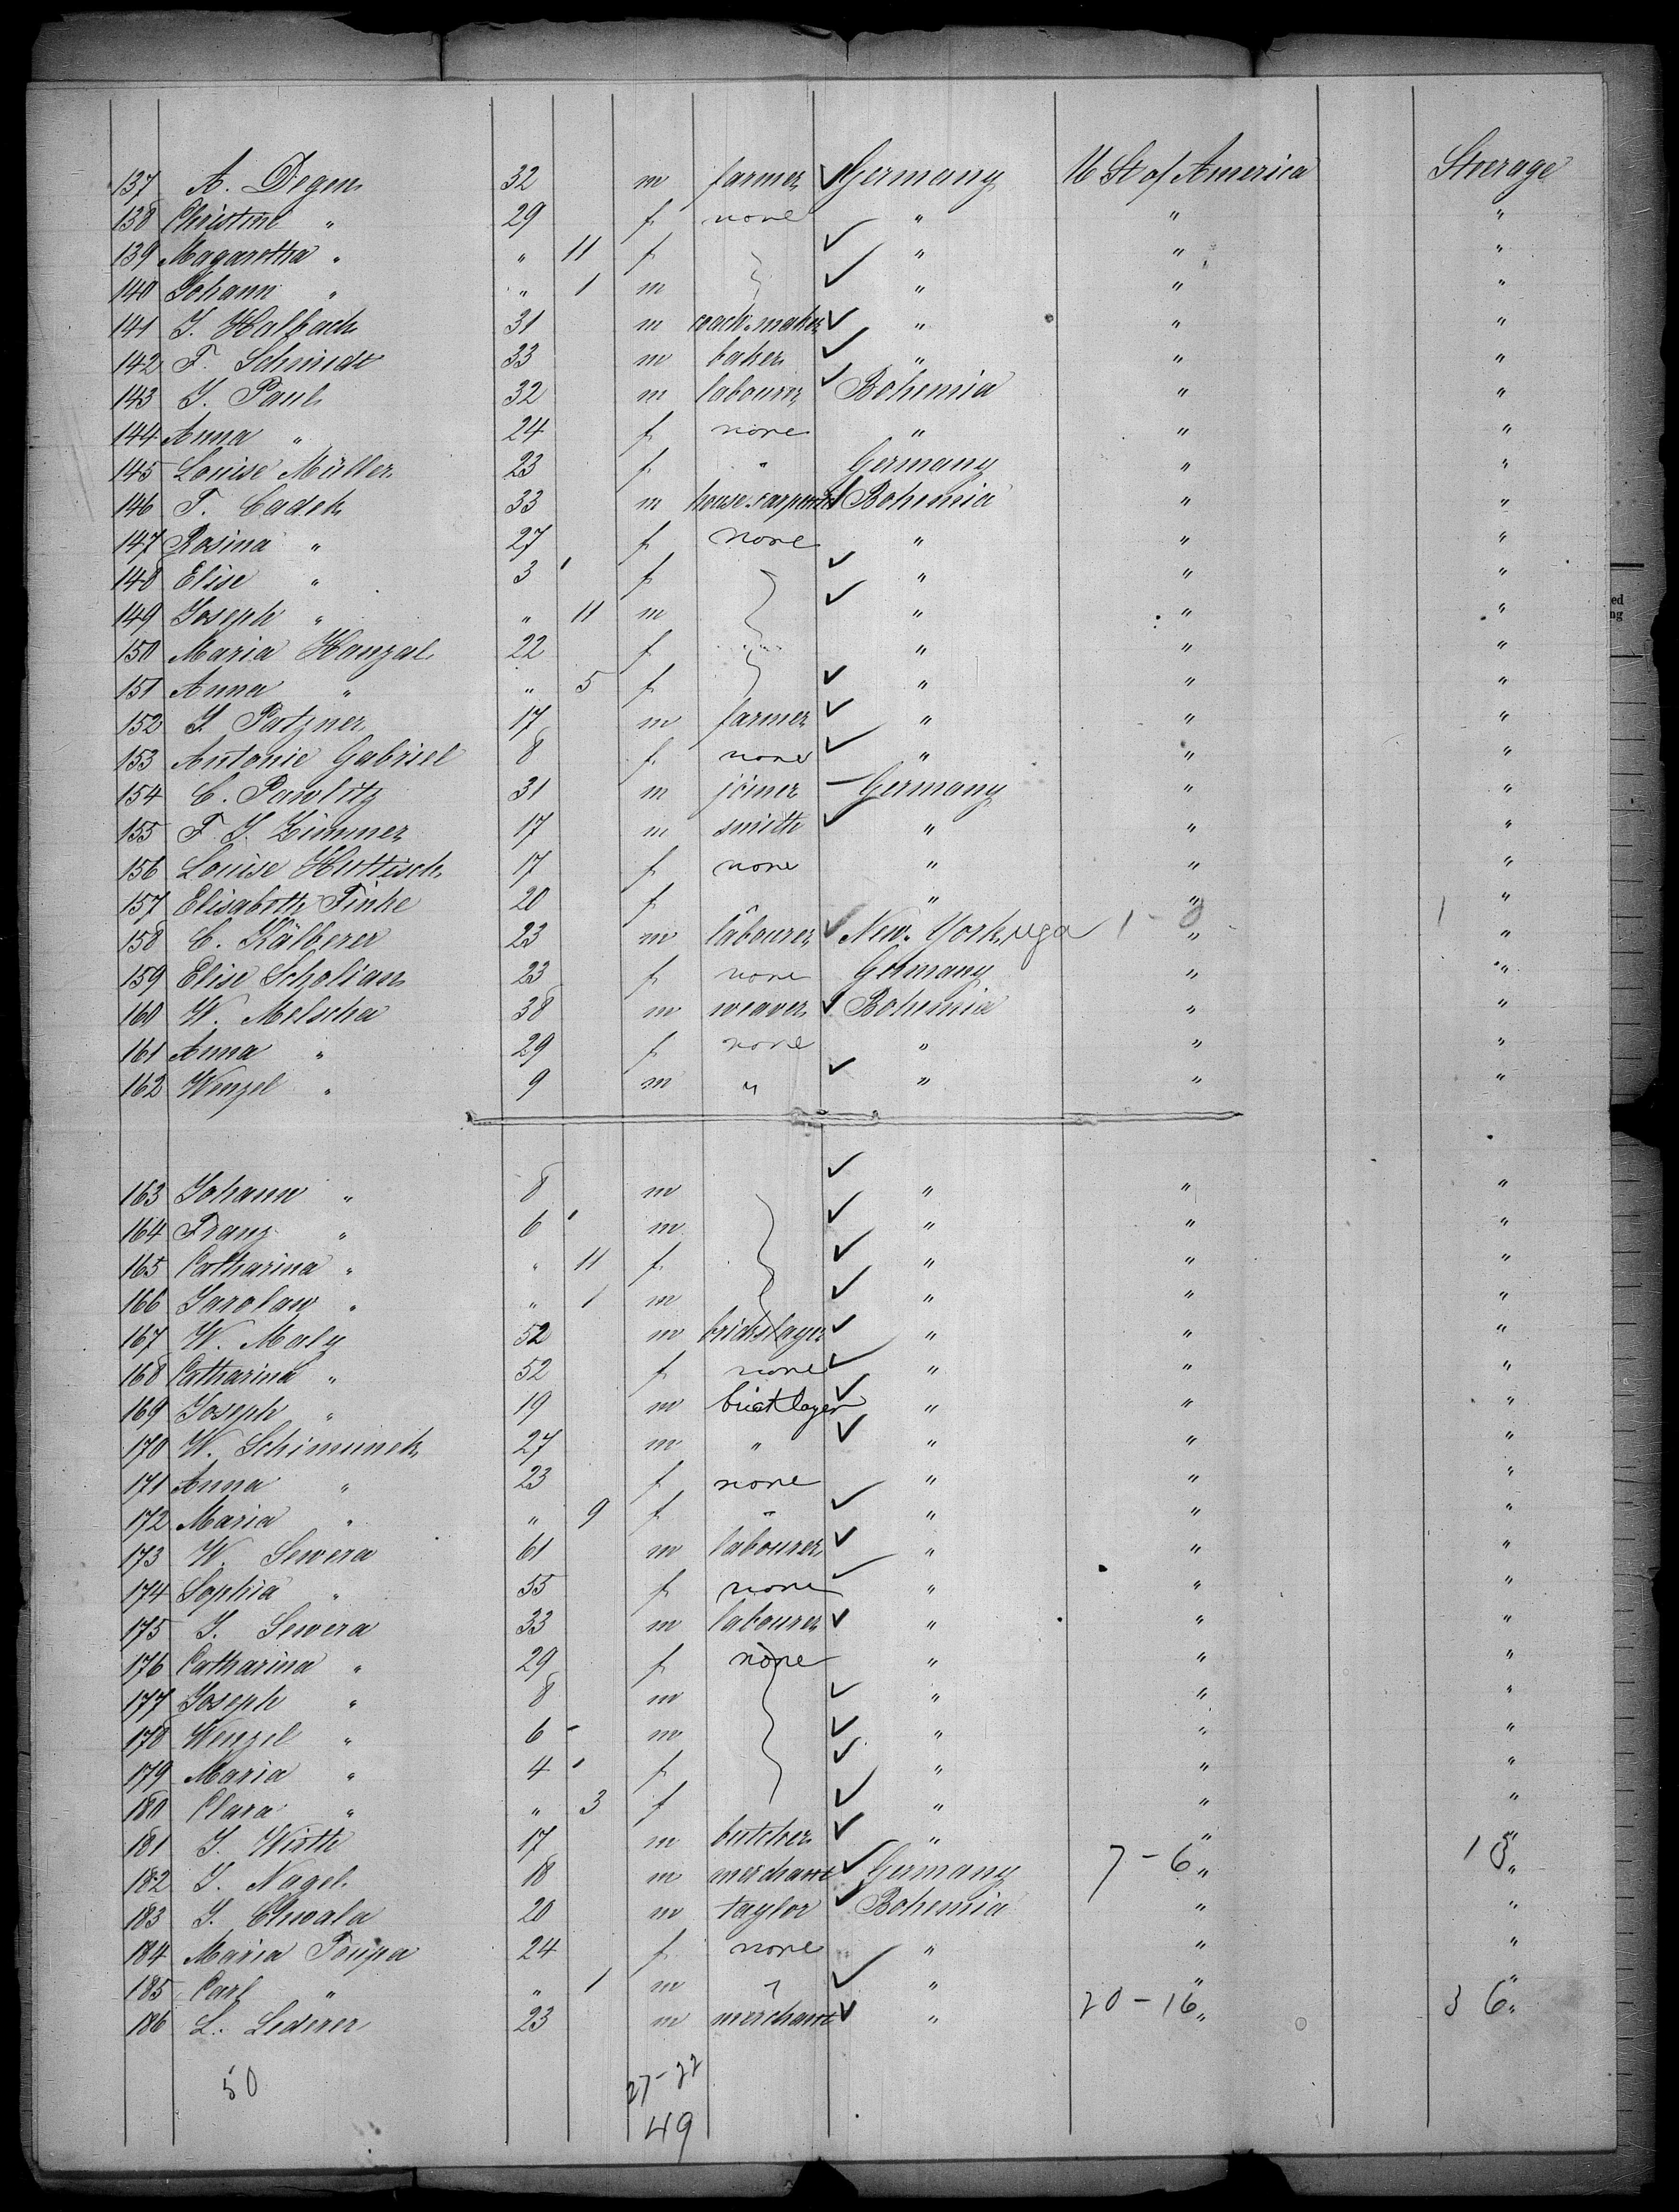 137 A. Degen 32 m farmer ✓ Germany U St of America Steerage
138 Christine " 29 f none " " "
139 Magaretha " " 11 f ✓ " " "
140 Johann " " 1 m ✓ " " "
141 J. Halbach 31 m coach-maker ✓ " " "
142 F. Schmidt 33 m baker ✓ " " "
143 J. Paul 32 m labourer ✓ Bohemia " "
144 Anna " 24 f none " " "
145 Louise Müller 23 f " Germany " "
146 F. Cadek 33 m house-carpenter ✓ Bohemia " "
147 Rosina " 27 f none " " "
148 Elise " 3 f ✓ " " "
149 Joseph " " 11 m ✓ " " "
150 Maria Hanzal 22 f " " "
151 Anna " " 5 f ✓ " " "
152 J. Patzner 17 m farmer ✓ " " "
153 Antonie Gabriel 8 f none ✓ " " "
154 C. Pawlitz 31 m joiner – Germany " "
155 F. J. Zimmer 17 m smith ✓ " " "
156 Louise Huttisch 17 f none " " "
157 Elisabeth Finke 20 f " " " "
158 C. Kälberer 23 m labourer ✓ New-York 1 - 0 " 1 "
159 Elise Scholian 23 f none Germany " "
160 W. Melscha 38 m weaver ✓ Bohemia " "
161 Anna " 29 f none " " "
162 Wenzel " 9 m " ✓ " " "
163 Johann " 8 m ✓ " " "
164 Franz " 6 m ✓ " " "
165 Catharina " " 11 f ✓ " " "
166 Jarolaw " " 1 m ✓ " " "
167 W. Maly 52 m brickslayer ✓ " " "
168 Catharina " 52 f none ✓ " " "
169 Joseph " 19 m bricklayer ✓ " " "
170 W. Schimunek 27 m " ✓ " " "
171 Anna " 23 f none " " "
172 Maria " " 9 f " ✓ " " "
173 W. Sewera 61 m labourer ✓ " " "
174 Sophia " 55 f none " " "
175 J. Sewera 33 m labourer ✓ " " "
176 Catharina " 29 f none " " "
177 Joseph " 8 m ✓ " " "
178 Wenzel " 6 m ✓ " " "
179 Maria " 4 f ✓ " " "
180 Clara " " 3 f ✓ " " "
181 J. Wirth 17 m butcher ✓ " " "
182 J. Nagel 18 m merchant ✓ Germany 7 - 6 " 1 "
183 J. Chwala 20 m taylor ✓ Bohemia " "
184 Maria Toupa 24 f none " " "
185 Carl " " 1 m " ✓ " " "
186 L. Lederer 23 m merchant ✓ " 20 - 16 " 3 6 "
50 27-22
49